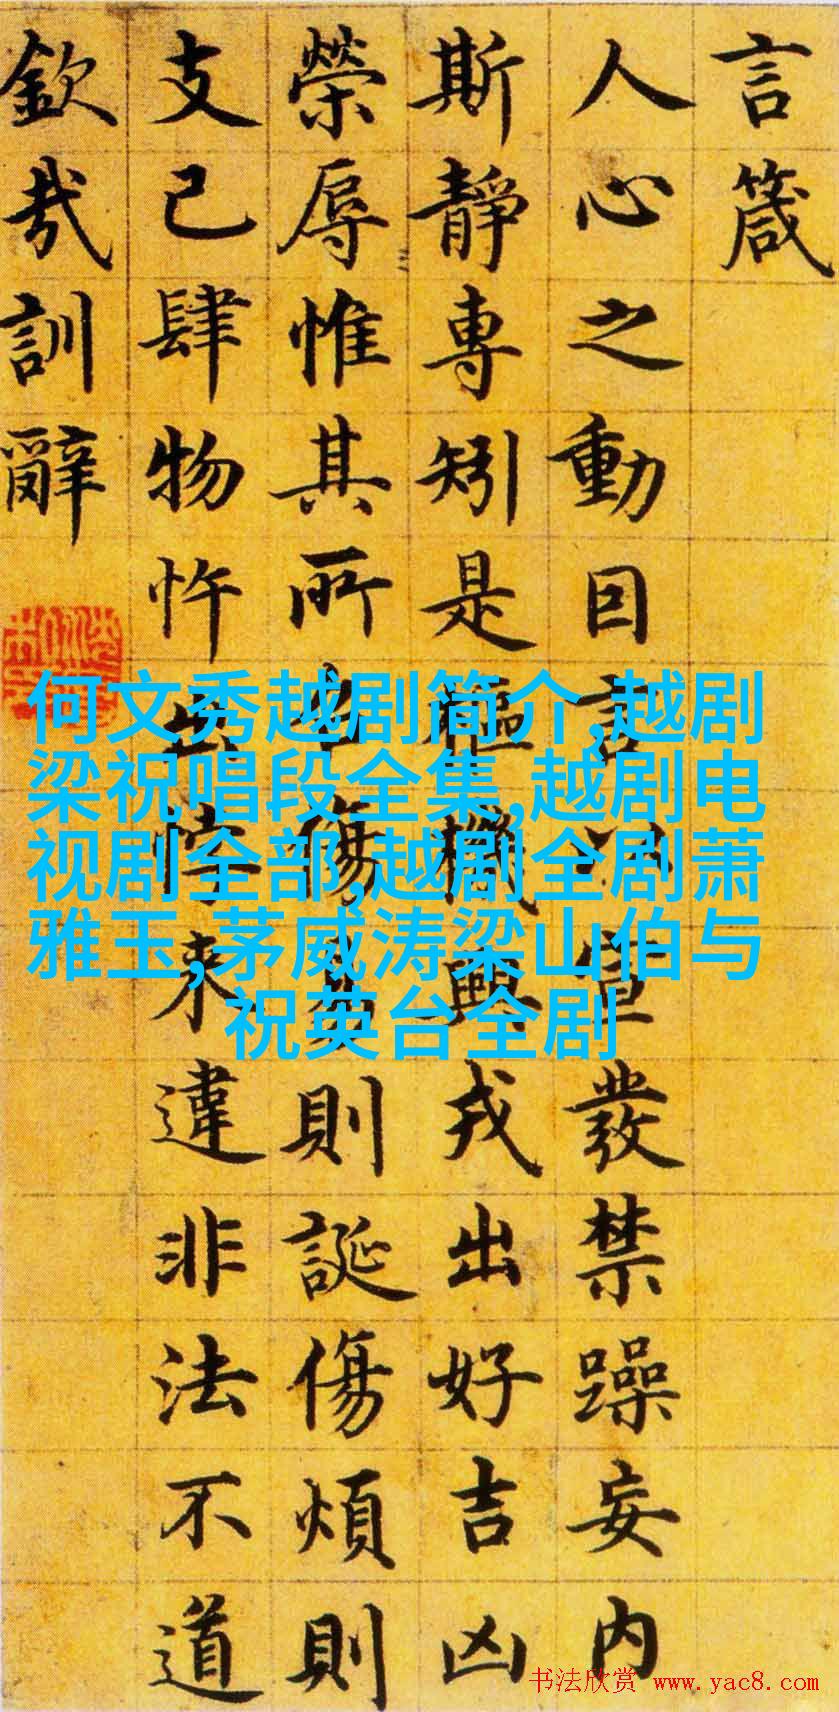 言箴
人心之動因言以宣發禁躁妄内
斯靜專矧是樞機興戎出好吉凶
榮辱惟其所召傷易則誕傷煩則
支己肆物忤出悖來違非法不道
欽哉訓辭
何文秀越剧简介,越剧
梁祝唱段全集,越剧电
视剧全部,越剧全剧萧
雅玉,茅威涛梁山伯与
祝英台全剧
书法欣赏 www.yac8.com